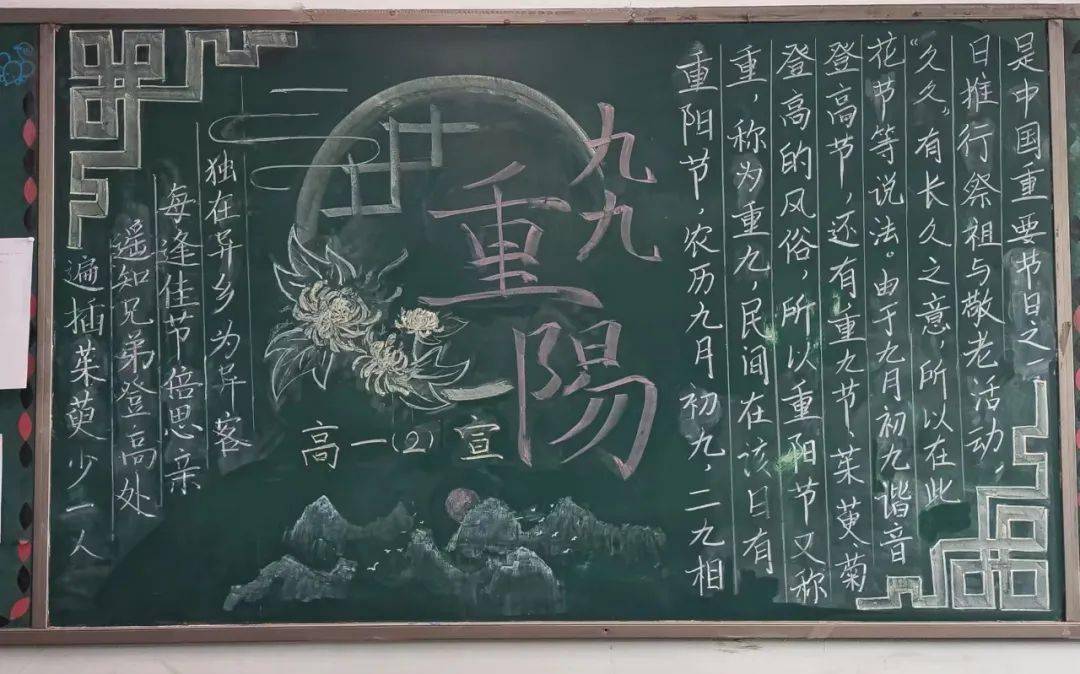 九九
重陽
高一(2)宣
独在异乡为异客
每逢佳节倍思亲
遥知兄弟登高处
遍插茱萸少一人
重阳节,农历九月初九,二九相
重,称为重九,民间在该日有
登高的风俗,所以重阳节又称
登高节,还有重九节茱萸菊
花节等说法。由于九月初九谐音
“久久”有长久之意,所以在此
日推行祭祖与敬老活动,
是中国重要节日之一